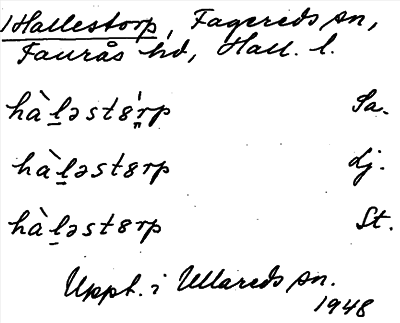 Hallestorp, Fagereds sn,
Faurås hd, Hall. l.
hàl̠əstɞ́r̠p Sa.
hàl̠əstɞrp dj.
hàl̠əstɞrp St.
Uppt. i Ullareds sn.
1948